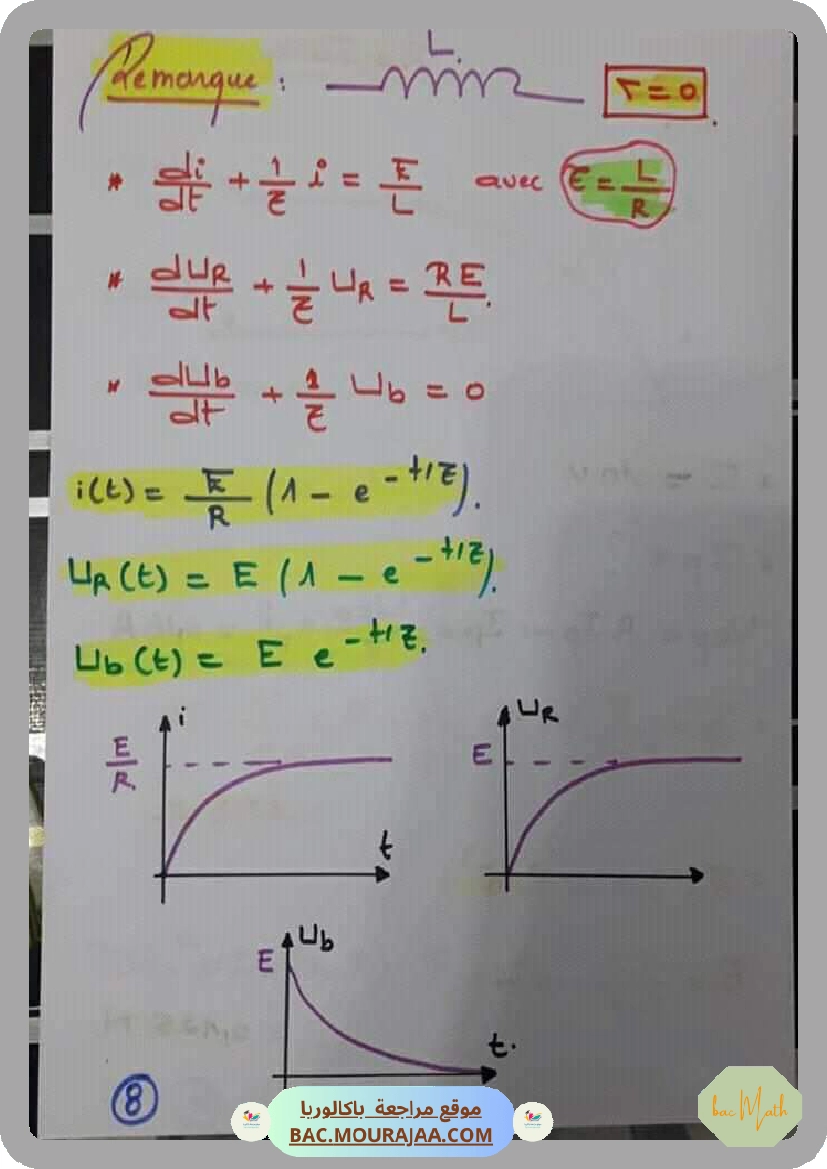 Remarque : L. r = 0 .
* di/dt + 1/τ i = E/L avec τ = L/R
* dUR/dt + 1/τ UR = RE/L.
* dUb/dt + 1/τ Ub = 0
i(t) = E/R (1 - e^-t/τ).
UR(t) = E (1 - e^-t/τ).
Ub(t) = E e^-t/τ.
i
E/R
t
UR
E
Ub
E
t.
8
موقع مراجعة باكالوريا
BAC.MOURAJAA.COM
bac Math